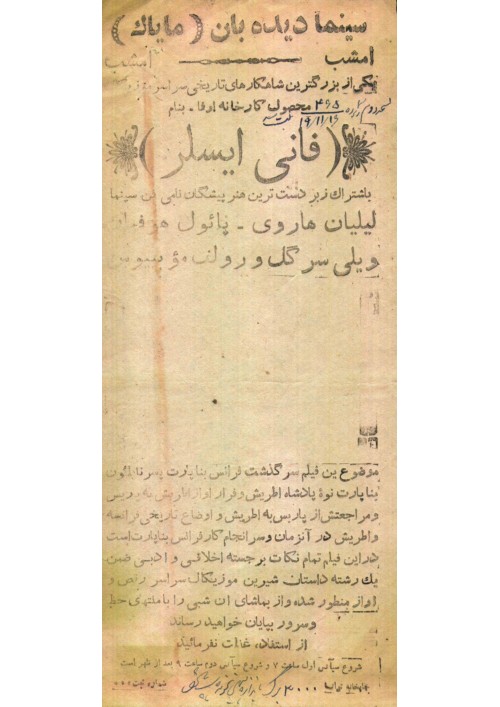 سینما دیده بان ( مایاك )
امشب امشب
یکی از بزرگترین شاهکارهای تاریخی
محصول کارخانه اوفا - بنام
( فانی ایسلر )
باشتراك زبر دست ترین هنر پیشگان نامی سینما
لیلیان هاروی - پائول
ویلی سر گل و رولف مؤ
موضوع ین فیلم سر گذشت فرانس بناپارت پسر ناپلئون
بناپارت نوهٔ پادشاه اطریش و فرار او از اطریش به پاریس
و مراجعتش از پاریس به اطریش و اوضاع تاریخی فرانسه
و اطریش در آنزمان و سرانجام کار فرانس بناپارت است
در این فیلم تمام نکات برجسته اخلاقی و ادبی ضمن
یك رشته داستان شیرین موزیکال سراسر رقص و
آواز منظور شده و از تماشای آن شبی را با منتهای حظ
و سرور بپایان خواهید رساند
از استفاده غفلت نفرمائید
شروع سیآنس اول ساعت ۷ و شروع سیآنس دوم ساعت ۹ بعد از ظهر است
۳۰۰۰ برگ